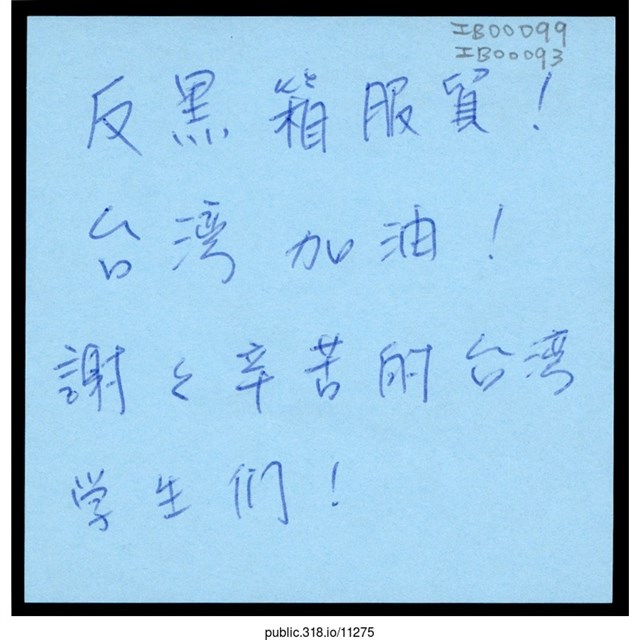 IB00099
IB00093
反黑箱服貿!
台湾加油!
謝々辛苦的台湾
学生们!
public.318.io/11275